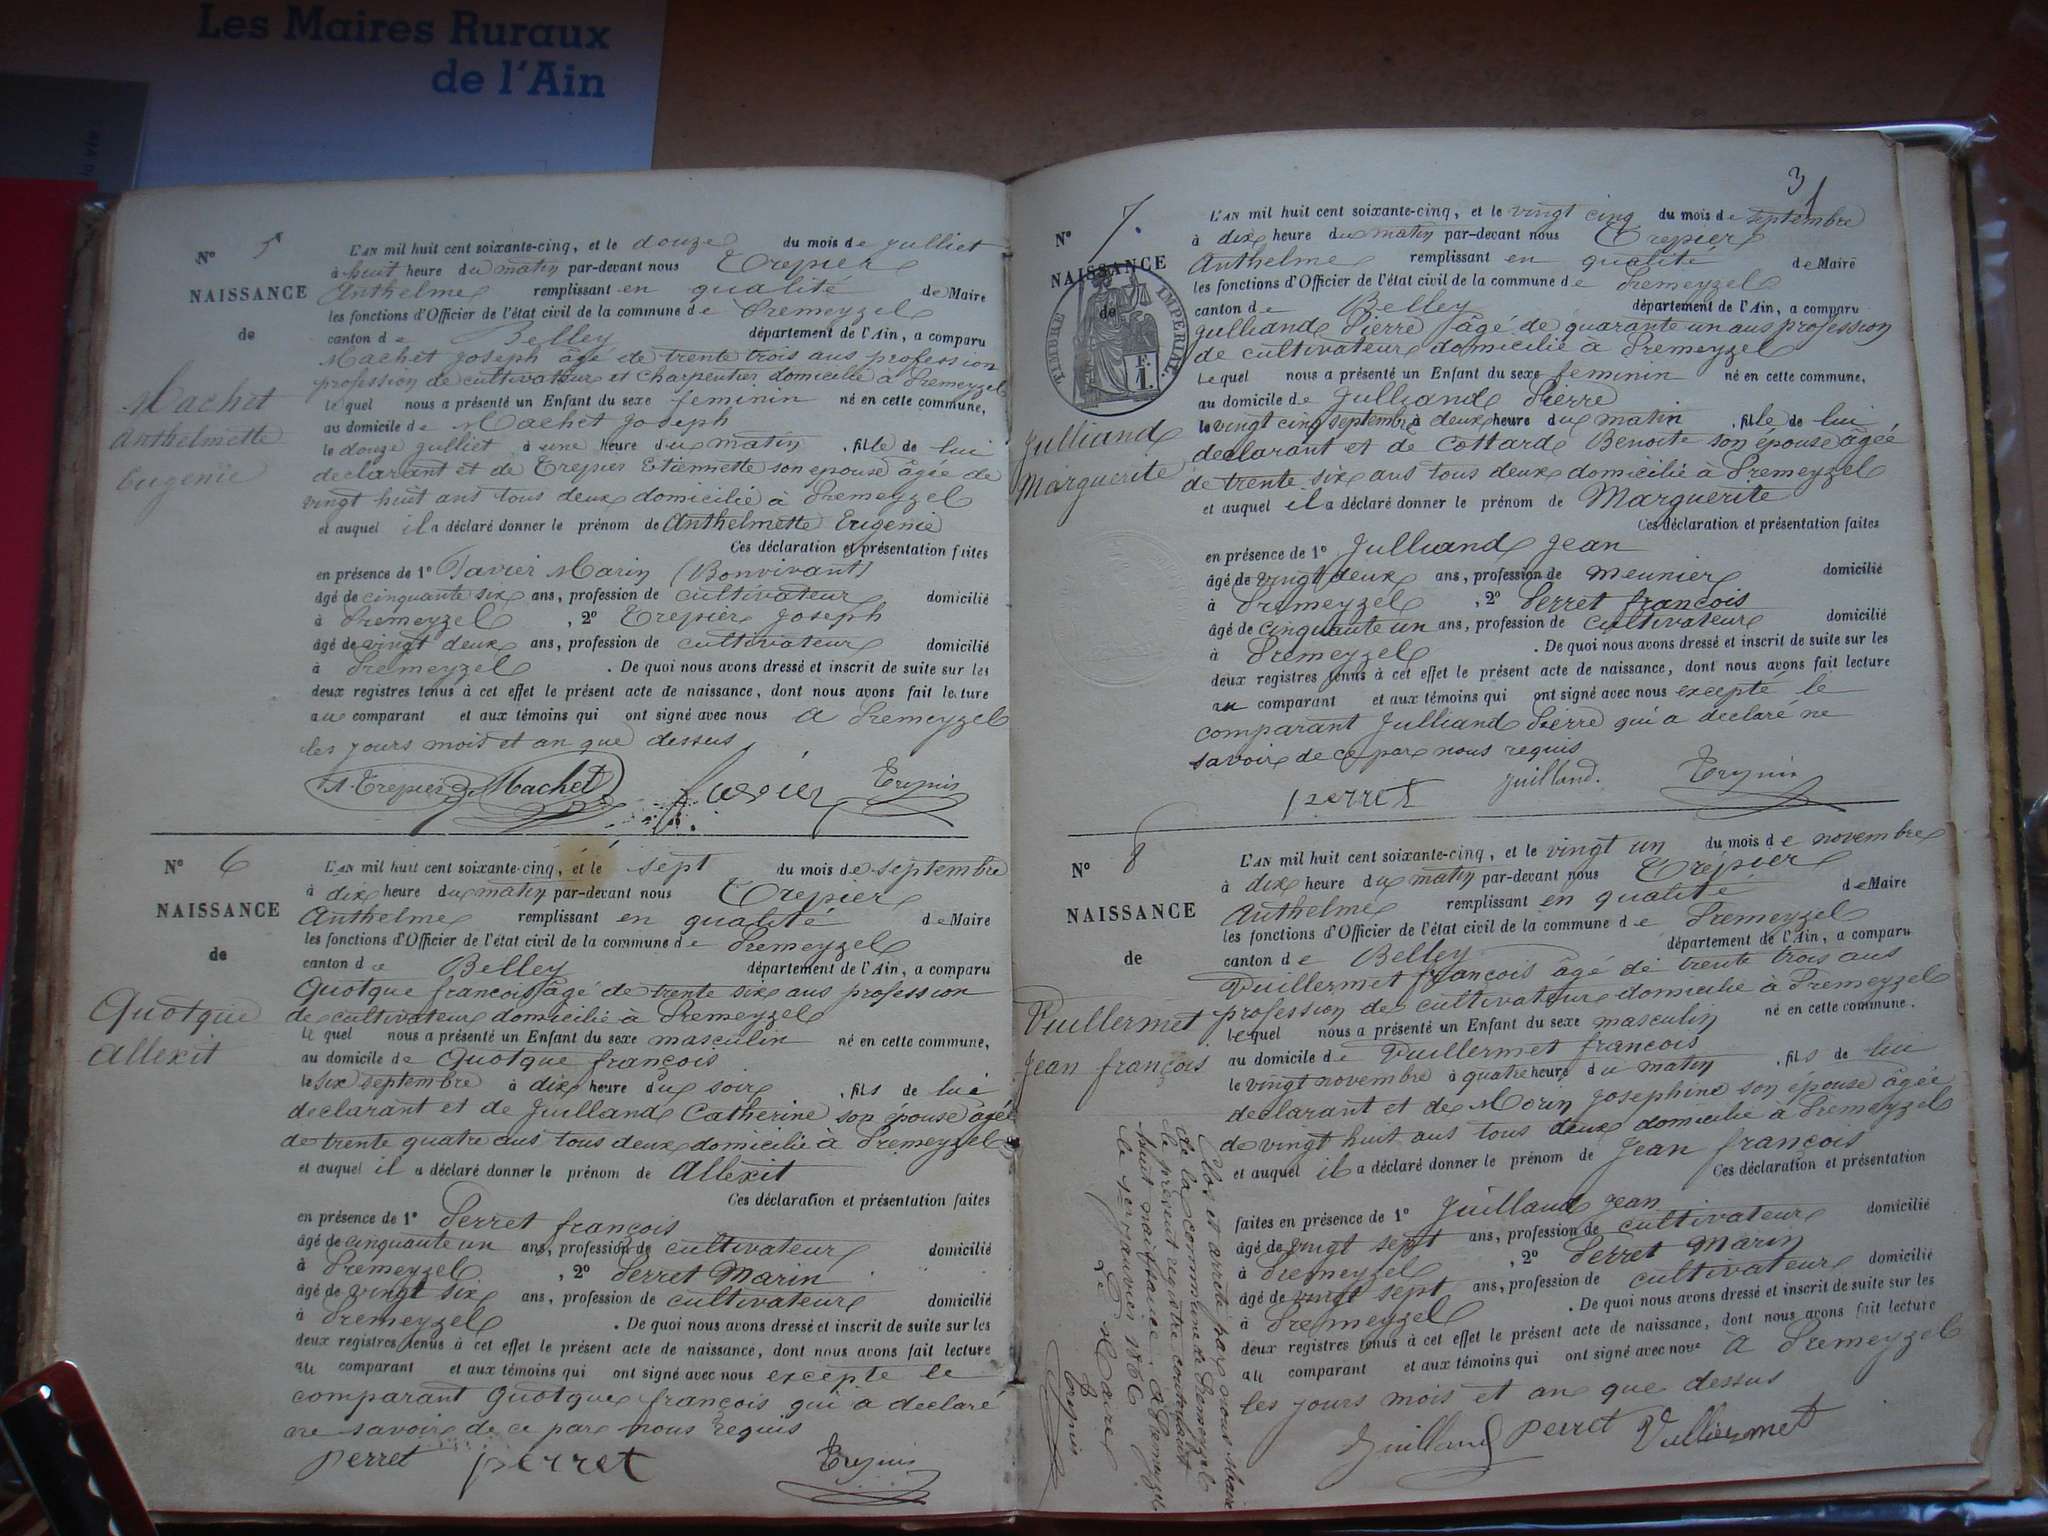 Les Maires Ruraux
de l'Ain
la vie
N° 5
NAISSANCE
de
Machet
Anthelmette
Eugenie
L'AN mil huit cent soixante-cinq, et le douze du mois de juilliet
à huit heure du matin par-devant nous Trepier
Anthelme remplissant en qualité de Maire
les fonctions d'Officier de l'état civil de la commune de Premeyzel
canton de Belley département de l'Ain, a comparu
Machet Joseph âgé de trente trois ans profession
profession de cultivateur et charpentier domicilié à Premeyzel
lequel nous a présenté un Enfant du sexe feminin né en cette commune,
au domicile de Machet Joseph
le douze juilliet à une heure du matin, fille de lui
declarant et de Trepier Etiennette son epouse âgée de
vingt huit ans tous deux domicilié à Premeyzel
et auquel il a déclaré donner le prénom de Anthelmette Eugenie
Ces déclaration et présentation faites
en présence de 1° Tavier Marin (Bonvivant)
âgé de cinquante six ans, profession de cultivateur domicilié
à Premeyzel, 2° Trepier Joseph
âgé de vingt deux ans, profession de cultivateur domicilié
à Premeyzel. De quoi nous avons dressé et inscrit de suite sur les
deux registres tenus à cet effet le présent acte de naissance, dont nous avons fait lecture
au comparant et aux témoins qui ont signé avec nous A Premeyzel
les jours mois et an que dessus
Trepier J Machet Tavier Trepier
N° 6
NAISSANCE
de
Quotque
Allexit
L'AN mil huit cent soixante-cinq, et le sept du mois de septembre
à dix heure du matin par-devant nous Trepier
Anthelme remplissant en qualité de Maire
les fonctions d'Officier de l'état civil de la commune de Premeyzel
canton de Belley département de l'Ain, a comparu
Quotque francois âgé de trente six ans profession
de cultivateur domicilié à Premeyzel
lequel nous a présenté un Enfant du sexe masculin né en cette commune,
au domicile de Quotque françois
le six septembre à dix heure du soir, fils de lui
declarant et de Juilland Catherine son épouse âgée
de trente quatre ans tous deux domicilié à Premeyzel
et auquel il a déclaré donner le prénom de Allexit
Ces déclaration et présentation faites
en présence de 1° Perret françois
âgé de cinquante un ans, profession de cultivateur domicilié
à Premeyzel, 2° Perret Marin
âgé de vingt six ans, profession de cultivateur domicilié
à Premeyzel. De quoi nous avons dressé et inscrit de suite sur les
deux registres tenus à cet effet le présent acte de naissance, dont nous avons fait lecture
au comparant et aux témoins qui ont signé avec nous excepte le
comparant Quotque françois qui a declaré
ne savoir de ce par nous requis
Perret perret Trepier
3
N° 7.
NAISSANCE
de
TIMBRE IMPÉRIAL
F.
1.
Julliand
Marguerite
L'AN mil huit cent soixante-cinq, et le vingt cinq du mois de septembre
à dix heure du matin par-devant nous Trepier
Anthelme remplissant en qualité de Maire
les fonctions d'Officier de l'état civil de la commune de Premeyzel
canton de Belley département de l'Ain, a comparu
Julliand Pierre âgé de quarante un ans profession
de cultivateur domicilié à Premeyzel
lequel nous a présenté un Enfant du sexe feminin né en cette commune,
au domicile de Julliand Pierre
le vingt cinq septembre à deux heure du matin, fille de lui
declarant et de Cottard Benoite son epouse âgée
de trente six ans tous deux domicilié à Premeyzel
et auquel il a déclaré donner le prénom de Marguerite
Ces déclaration et présentation faites
en présence de 1° Julliand Jean
âgé de vingt deux ans, profession de meunier domicilié
à Premeyzel, 2° Perret françois
âgé de cinquante un ans, profession de cultivateur domicilié
à Premeyzel. De quoi nous avons dressé et inscrit de suite sur les
deux registres tenus à cet effet le présent acte de naissance, dont nous avons fait lecture
au comparant et aux témoins qui ont signé avec nous excepté le
comparant Julliand Pierre qui a declaré ne
savoir de ce par nous requis
perret Juilland. Trepier
N° 8
NAISSANCE
de
Vuillermet
Jean françois
L'AN mil huit cent soixante-cinq, et le vingt un du mois de novembre
à dix heure du matin par-devant nous Trépier
Anthelme remplissant en qualité de Maire
les fonctions d'Officier de l'état civil de la commune de Premeyzel
canton de Belley département de l'Ain, a comparu
Vuillermet françois âgé de trente trois ans
profession de cultivateur domicilié à Premeyzel
lequel nous a présenté un Enfant du sexe masculin né en cette commune.
au domicile de Vuillermet francois
le vingt novembre à quatre heure du matin, fils de lui
declarant et de Morin Josephine son épouse âgée
de vingt huit ans tous deux domicilié à Premeyzel
et auquel il a déclaré donner le prénom de Jean françois
Ces déclaration et présentation
faites en présence de 1° Juilland Jean
âgé de vingt sept ans, profession de cultivateur domicilié
à Premeyzel, 2° Perret Marin
âgé de vingt sept ans, profession de cultivateur domicilié
à Premeyzel. De quoi nous avons dressé et inscrit de suite sur les
deux registres tenus à cet effet le présent acte de naissance, dont nous avons fait lecture
au comparant et aux témoins qui ont signé avec nous A Premeyzel
les jours mois et an que dessus
Juilland perret Vuillermet
Clos et arrété par nous Maire
de la commune de Premeyzel
le présent registre contenant
huit naissance. A Premeyzel
le 1er janvier 1866
Le Maire
Trepier